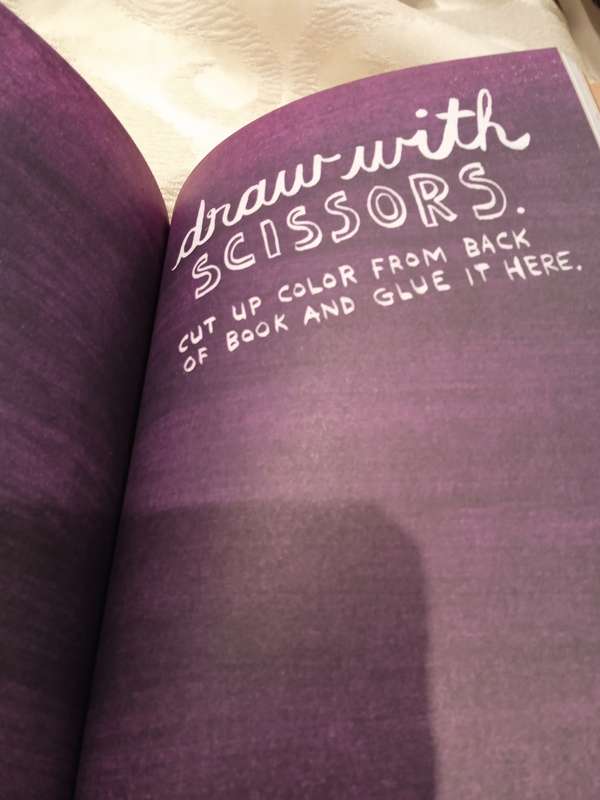 draw with
SCISSORS.
CUT UP COLOR FROM BACK
OF BOOK AND GLUE IT HERE.